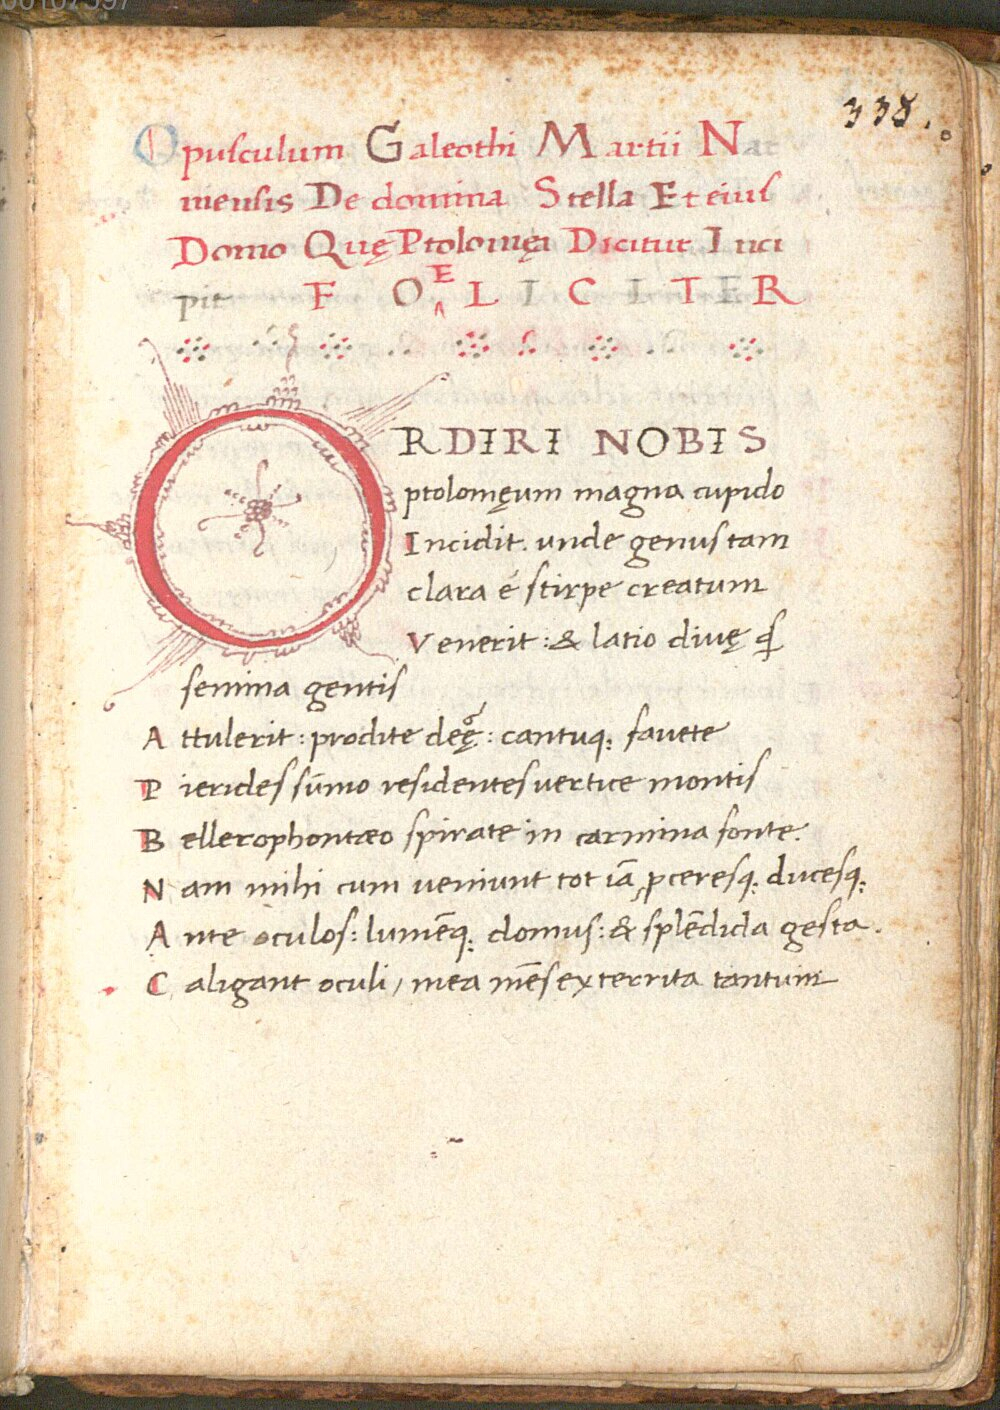 00107397
338.
Opusculum Galeothi Martii Nar
niensis De domina Stella Et eius
Domo Quę Ptolomęi Dicitur Inci
pit FOELICITER
ORDIRI NOBIS
ptolomęum magna cupido
Incidit. unde genus tam
clara é stirpe creatum
Venerit: & latio divę
semina gentis
Attulerit: prodite deę: cantuq; favete
Pierides sūmo residentes vertice montis
Bellerophontæo spirate in carmina fonte.
Nam mihi cum veniunt tot iā ꝓceresq; ducesq;
Ante oculos: lumēq; domus: & splēdida gesta.
Caligant oculi, mea mēs exterrita tantum